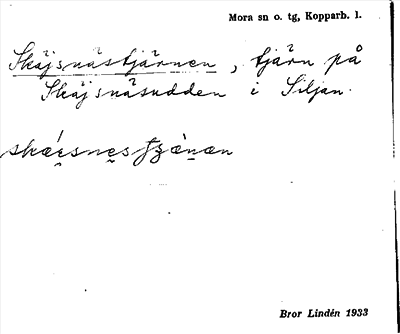 Mora sn o. tg, Kopparb. l.
Skäjsnästjärnen, tjärn på
Skäjsnäsudden i Siljan.
Bror Lindén 1933